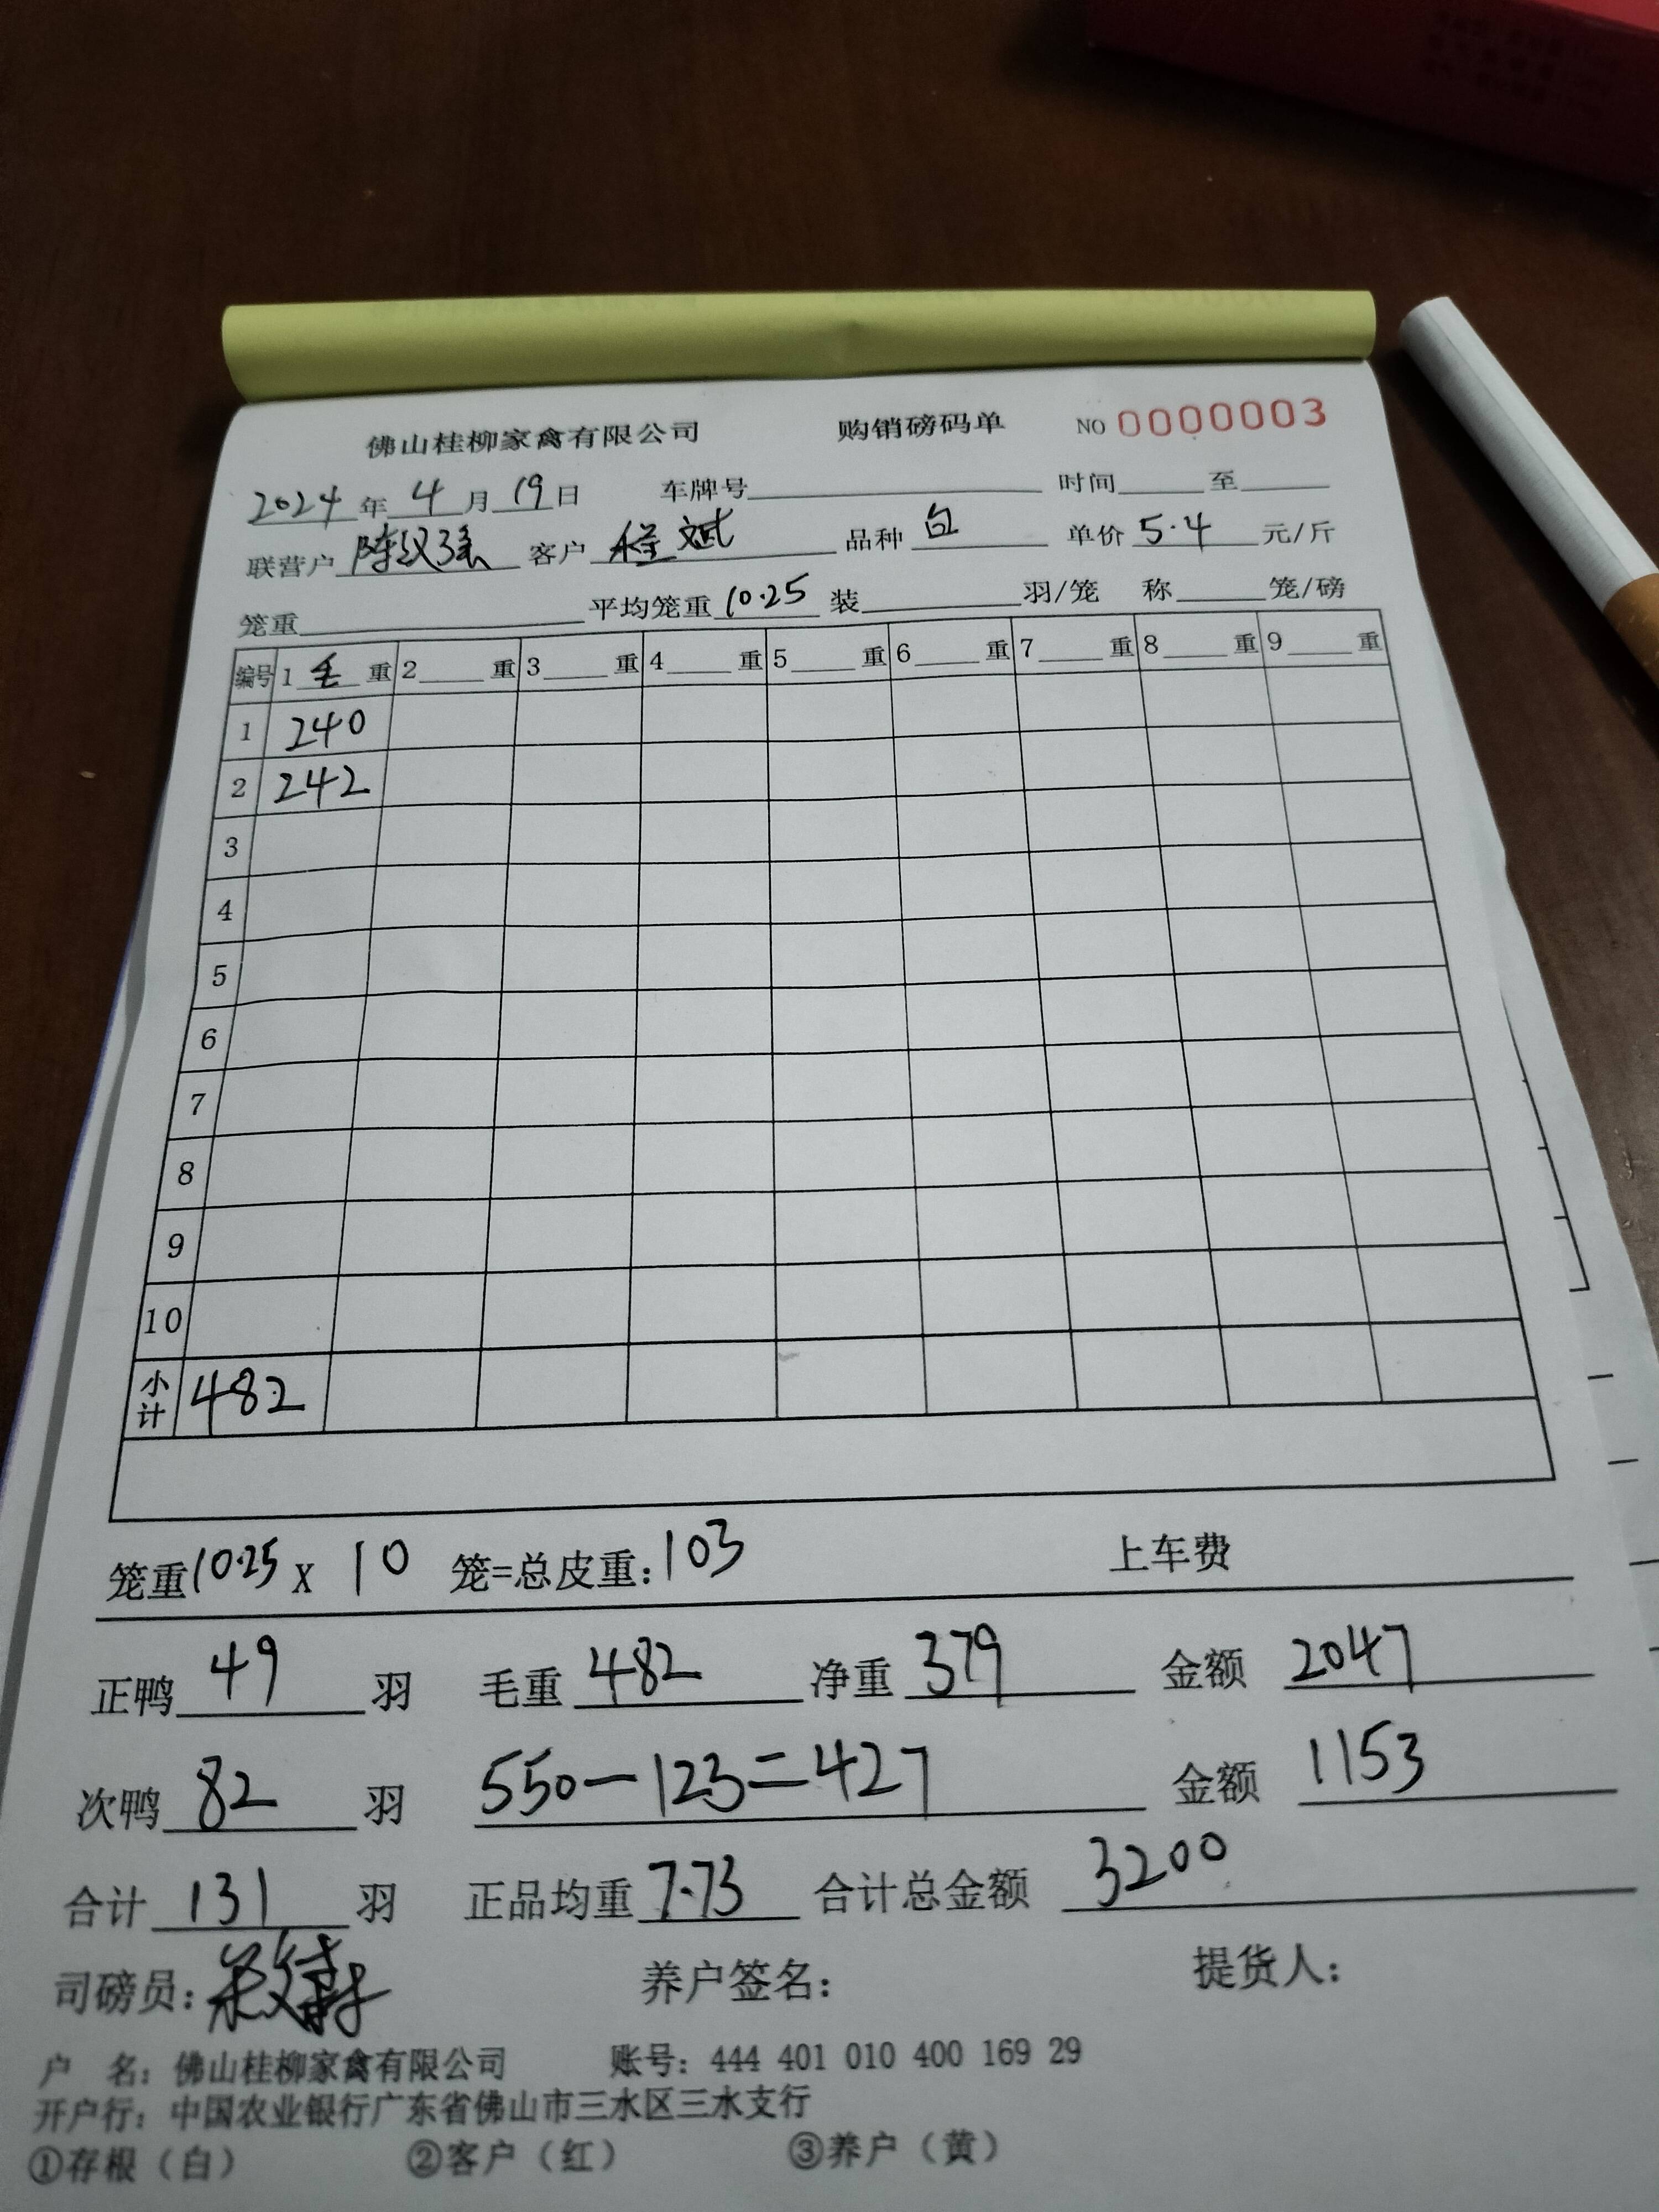 佛山桂柳家禽有限公司 购销磅码单 NO 0000003
2024年4月19日 车牌号 时间 至
联营户 陈汉强 客户 斌 品种 白 单价 5.4 元/斤
笼重 平均笼重 10.25 装 羽/笼 称 笼/磅
编号 1 毛 重 2 重 3 重 4 重 5 重 6 重 7 重 8 重 9 重
1 240
2 242
3
4
5
6
7
8
9
10
小计 482
笼重 10.25 X 10 笼=总皮重: 103 上车费
正鸭 49 羽 毛重 482 净重 379 金额 2047
次鸭 82 羽 550-123=427 金额 1153
合计 131 羽 正品均重 7.73 合计总金额 3200
司磅员: 养户签名: 提货人:
户 名: 佛山桂柳家禽有限公司 账号: 444 401 010 400 169 29
开户行: 中国农业银行广东省佛山市三水区三水支行
①存根（白） ②客户（红） ③养户（黄）